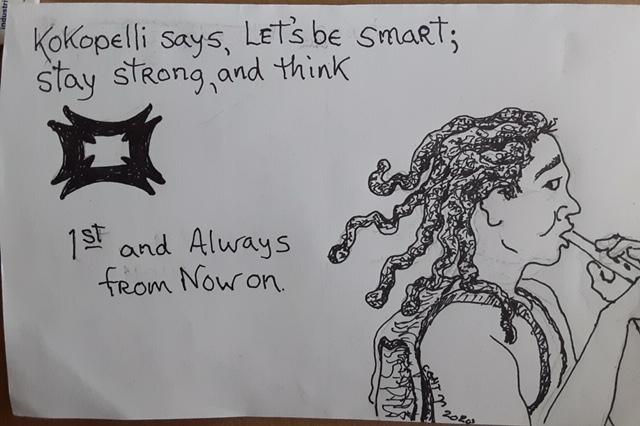 industri
Kokopelli says, Let's be smart;
stay strong, and think
1st and Always
from Now on.
2020